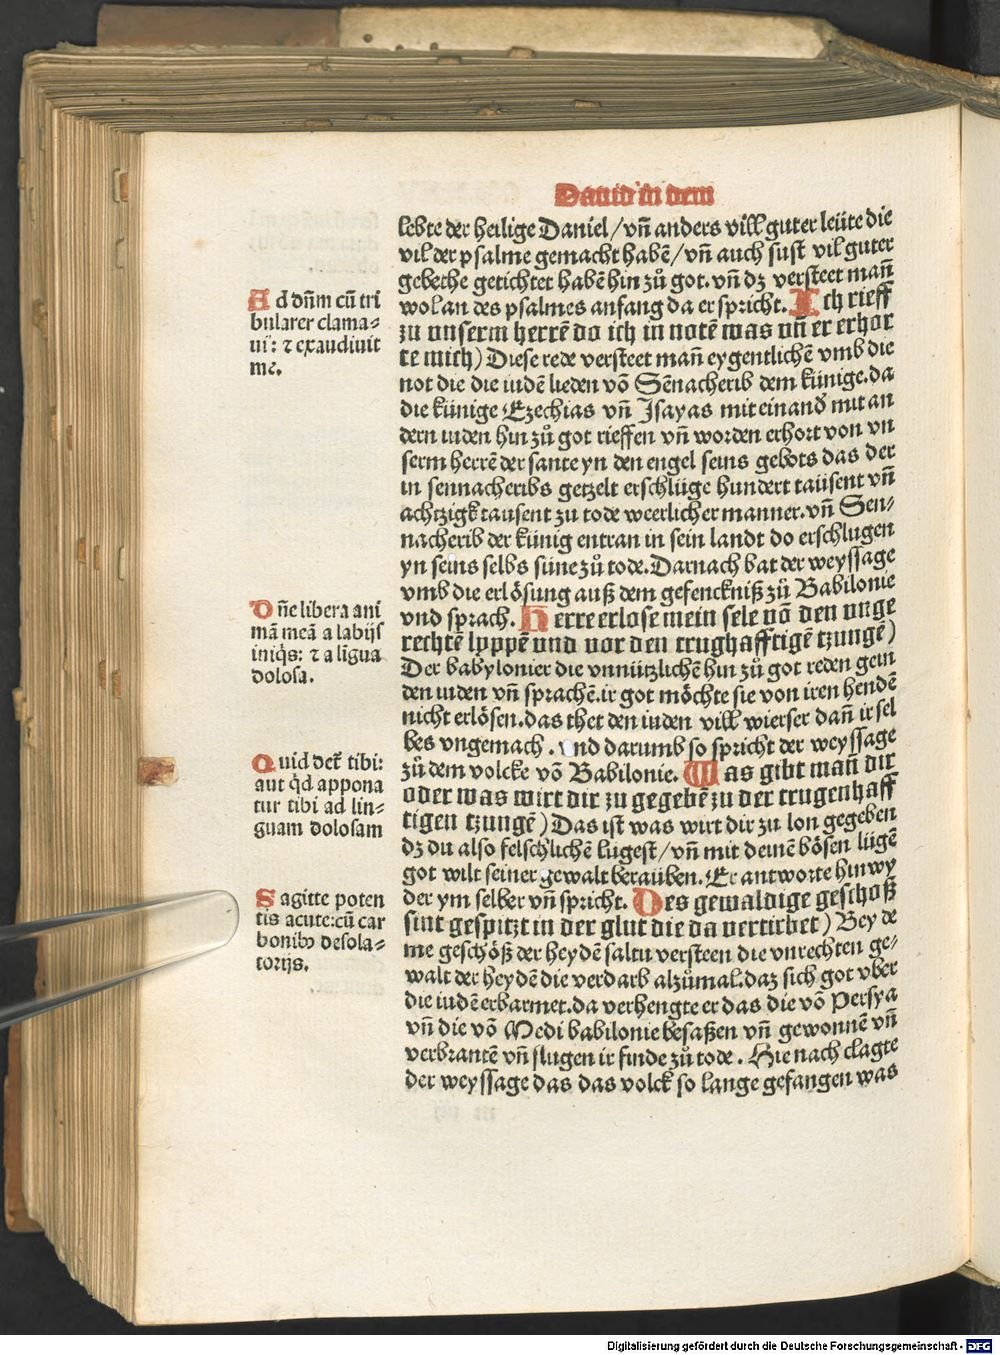 Dauid in dem
lebte der heilige Daniel/vn̄ anders vill guter leüte die
vil der psalme gemacht habē/vn̄ auch sust vil guter
gebethe getichtet habē hin zů got. vn̄ dz versteet man̄
wol an des psalmes anfang da er spricht. Ich rieff
zu vnserm herrē do ich in notē was vn̄ er erhor
te mich) Diese rede versteet man̄ eygentlichē vmb die
not die die iudē lieden vō Sēnacherib dem künige. da
die künige Ezechias vn̄ Isayas mit einand̄ mit an
dern iuden hin zů got rieffen vn̄ worden erhort von vn
serm herrē der sante yn den engel seins gebots das der
in sennacheribs getzelt erschlüge hundert taüsent vn̄
achtzigk tausent zu tode weerlicher manner. vn̄ Sen⸗
nacherib der künig entran in sein landt do erschlugen
yn seins selbs süne zů tode. Darnach bat der weyssage
vmb die erlösung auß dem gefenckniß zů Babilonie
vnd sprach. Herre erlose mein sele vō den vnge
rechtē lyppē vnd vor den trughafftigē tzungē)
Der babylonier die vnnützlichē hin zů got reden gein
den iuden vn̄ sprachē. ir got möchte sie von iren hendē
nicht erlösen. das thet den iuden vill wierser dan̄ ir sel
bes vngemach. vnd darumb so spricht der weyssage
zů dem volcke vō Babilonie. Was gibt man̄ dir
oder was wirt dir zu gegebē zu der trugenhaff
tigen tzungē) Das ist was wirt dir zu lon gegeben
dz du also felschlichē lugest/vn̄ mit deinē bösen lügē
got wilt seiner gewalt berauben. Er antworte hin wy
der ym selber vn̄ spricht. Des gewaldige geschoß
sint gespitzt in der glut die da vertirbet) Bey de
me geschöß der heydē saltu versteen die vnrechten ge⸗
walt der heydē die verdarb alzůmal. daz sich got vber
die iudē erbarmet. da verhengte er das die vō Persya
vn̄ die vō Medi babilonie besaßen vn̄ gewonnē vn̄
verbrantē vn̄ slugen ir finde zů tode. Hie nach clagte
der weyssage das das volck so lange gefangen was
Ad dn̄m cū tri
bularer clama⸗
ui: ⁊ exaudiuit
me.
Dn̄e libera ani
mā meā a labijs
iniq̄s: ⁊ a līgua
dolosa.
Quid det᷑ tibi:
aut q̄d appona
tur tibi ad lin⸗
guam dolosam
Sagitte poten
tis acute: cū car
bonibꝰ desola⸗
torijs.
Digitalisierung gefördert durch die Deutsche Forschungsgemeinschaft - DFG